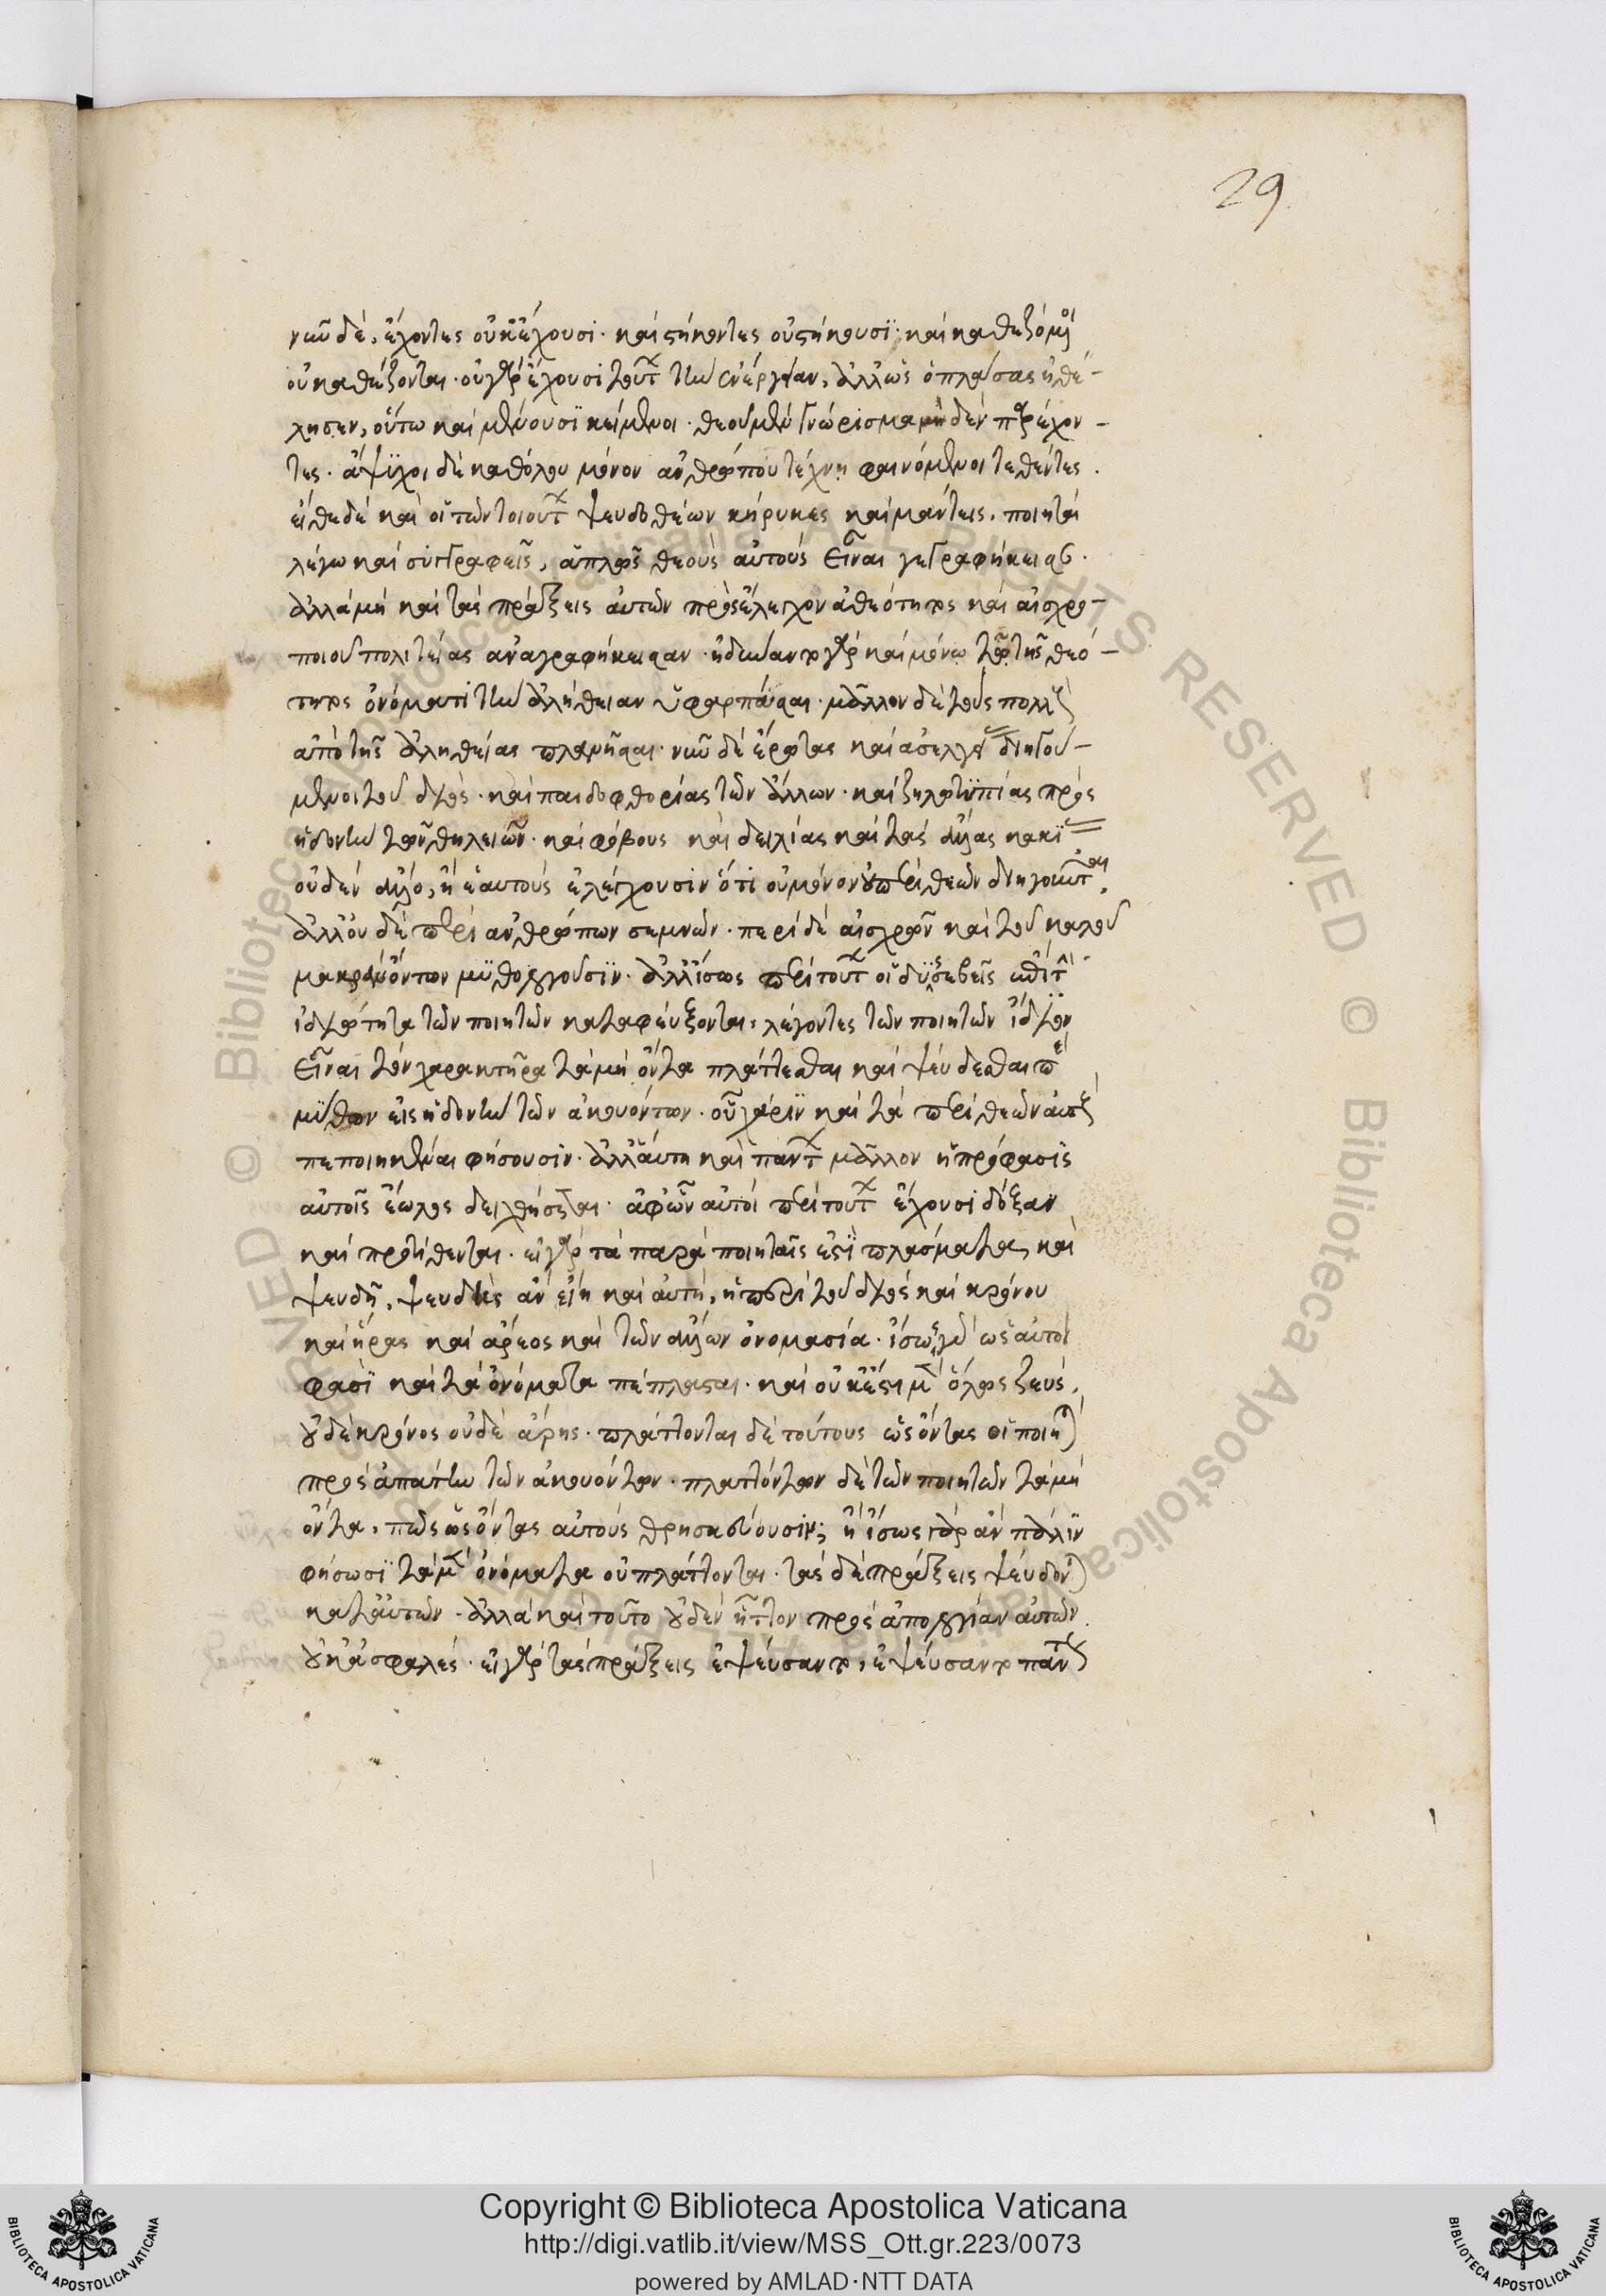 29
νῦν δὲ, ἔχοντες οὐκ ἔχουσι. καὶ στήκοντες οὐ στήκουσι. καὶ καθεζόμενοι
οὐ καθέζονται. οὐ γὰρ ἔχουσι τούτων τὴν ἐνέργειαν, ἀλλ' ὡς ὁ πλάσας ἠθέ-
λησεν, οὕτω καὶ μένουσι κείμενοι. θεοῦ μὲν γνώρισμα μηδὲν παρέχον-
τες. ἄψυχοι δὲ καθόλου μόνον ἀνθρώπου τέχνῃ φαινόμενοι τεθέντες.
εἴθε δὲ καὶ οἱ τῶν τοιούτων ψευδοθέων κήρυκες καὶ μάντεις, ποιηταὶ
λέγω καὶ συγγραφεῖς, ἁπλῶς θεοὺς αὐτοὺς εἶναι γεγραφήκεισαν.
ἀλλὰ μὴ καὶ τὰς πράξεις αὐτῶν πρὸς ἔλεγχον ἀθεότητος καὶ αἰσχρο-
ποιοῦ πολιτείας ἀναγραφήκεισαν. ἠδύναντο γὰρ καὶ μόνῳ τῷ τῆς θεό-
τητος ὀνόματι τὴν ἀλήθειαν ὑφαρπάσαι. μᾶλλον δὲ τοὺς πολλοὺς
ἀπὸ τῆς ἀληθείας πλανῆσαι. νῦν δὲ ἔρωτας καὶ ἀσελγείας διηγού-
μενοι τοῦ διὸς. καὶ παιδοφθορίας τῶν ἄλλων. καὶ ζηλοτυπίας πρὸς
ἡδονὴν τῶν θηλειῶν. καὶ φόβους καὶ δειλίας καὶ τὰς ἄλλας κακίας
οὐδὲν ἄλλο, ἢ ἑαυτοὺς ἐλέγχουσιν ὅτι οὐ μόνον οὐ περὶ θεῶν διηγοῦνται,
ἀλλ' οὐδὲ περὶ ἀνθρώπων σεμνῶν. περὶ δὲ αἰσχρῶν καὶ τοῦ καλοῦ
μακρὰν ὄντων μυθολογοῦσιν. ἀλλ' ἴσως περὶ τούτων οἱ δυσσεβεῖς ἐπὶ τὴν
ἰδιότητα τῶν ποιητῶν καταφεύξονται, λέγοντες τῶν ποιητῶν ἴδιον
εἶναι τὸν χαρακτῆρα τὰ μὴ ὄντα πλάττεσθαι καὶ ψεύδεσθαι περὶ
μύθων εἰς ἡδονὴν τῶν ἀκουόντων. οὗ χάριν καὶ τὰ περὶ θεῶν αὐτοὺς
πεποιηκέναι φήσουσιν. ἀλλ' αὕτη καὶ πάντων μᾶλλον ἡ πρόφασις
αὐτοῖς ἕωλος δειχθήσεται. ἀφ' ὧν αὐτοὶ περὶ τούτων ἔχουσι δόξαν
καὶ προτίθενται. εἰ γὰρ τὰ παρὰ ποιηταῖς ἐστὶ πλάσματα, καὶ
ψευδῆ, ψευδὴς ἂν εἴη καὶ αὐτὴ, ἡ περὶ τοῦ διὸς καὶ κρόνου
καὶ ἥρας καὶ ἄρεος καὶ τῶν ἄλλων ὀνομασία. ἴσως γὰρ ὡς αὐτοὶ
φασὶ καὶ τὰ ὀνόματα πέπλασται. καὶ οὐκ ἔστι μὲν ὅλως ζεὺς,
οὐδὲ κρόνος οὐδὲ ἄρης. πλάττονται δὲ τούτους ὡς ὄντας οἱ ποιηταὶ
πρὸς ἀπάτην τῶν ἀκουόντων. πλαττόντων δὲ τῶν ποιητῶν τὰ μὴ
ὄντα, πῶς ὡς ὄντας αὐτοὺς θρησκεύουσιν; ἢ ἴσως γὰρ ἂν πάλιν
φήσωσι τὰ μὲν ὀνόματα οὐ πλάττονται. τὰς δὲ πράξεις ψεύδονται
κατ' αὐτῶν. ἀλλὰ καὶ τοῦτο οὐδὲν ἧττον πρὸς ἀπολογίαν αὐτῶν
οὐκ ἀσφαλές. εἰ γὰρ τὰς πράξεις ἐψεύσαντο, ἐψεύσαντο πάντως
Copyright © Biblioteca Apostolica Vaticana
http://digi.vatlib.it/view/MSS_Ott.gr.223/0073
powered by AMLAD·NTT DATA
BIBLIOTECA APOSTOLICA VATICANA
BIBLIOTECA APOSTOLICA VATICANA